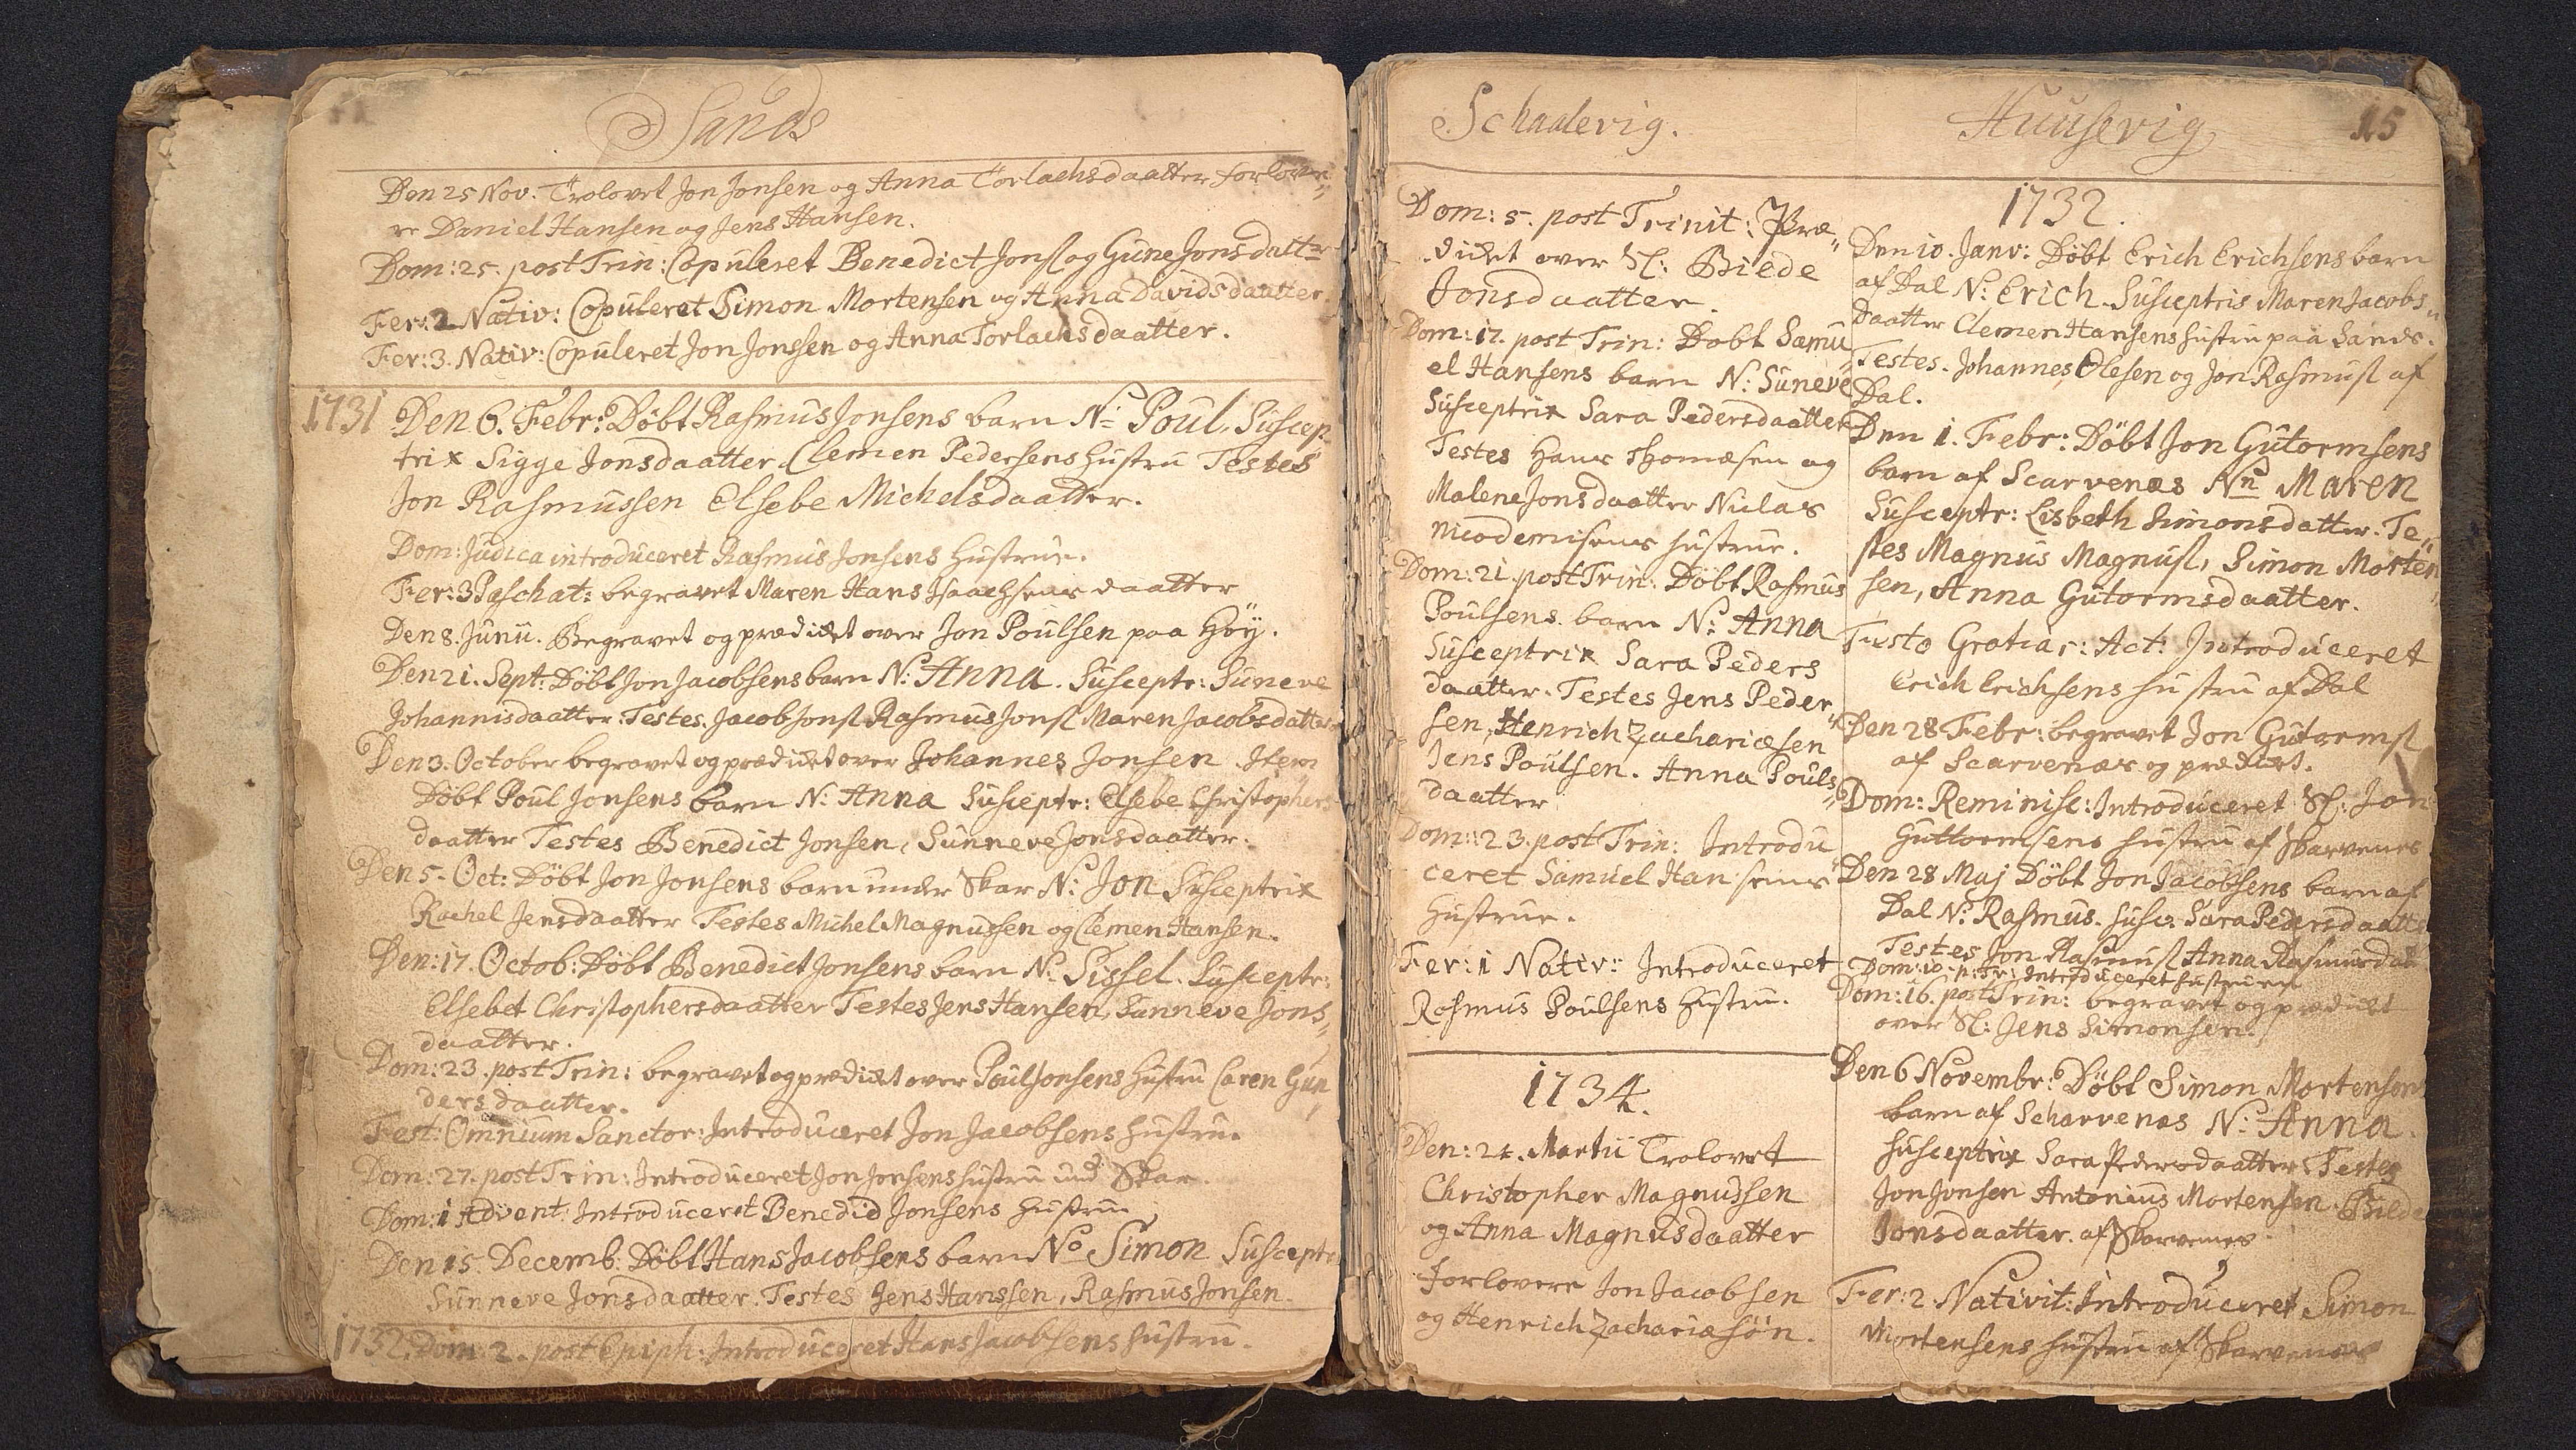 Sands
Den 25 Nov. Trolovet Jon Jonsen og Anna Torlachsdaatter forlove„
re Daniel Hansen og Jens Hansen.
Dom: 25. post Trin: Copuleret Benedict Jonsl og Gune Jonsdatter
Fer: 2 Nativ: Copuleret Simon Mortensen og Anna Davidsdaatter.
Fer: 3. Nativ: Copuleret Jon Jonssen og Anna Torlachsdaatter.
1731 Den 6. Febr: Döbt Rasmus Jonsens barn N: Poul. Suscep„
trix Sigge Jonsdaatter Clemen Pedersens hustru Testes
Jon Rasmussen Elsebe Michelsdaatter.
Dom: Judica introduceret Rasmus Jonsens hustrue.
Fer: 3 Paschat: begravet Maren Hans Isaachsens daatter
Den 8. Junii. Begravet og prædicket over Jon Poulsen paa Höÿ.
Den 21. Sept: Döbt Jon Jacobsens barn N: Anna. Susceptr: Suneve
Johannisdaatter. Testes. Jacob Jonsl Rasmus Jonsl Maren Jacobsdatter
Den 3. October begravet og prædicket over Johannes Jonsen. Item
Döbt Poul Jonsens barn N: Anna Susceptr: Elsebe Christophers
daatter Testes Benedict Jonsen, Sunneve Jonsdaatter.
Den 5. Oct: Döbt Jon Jonsens barn under Skar N: Jon Susceptrix
Rachel Jensdaatter Testes Michel Magnussen og Clemen Hansen.
Den: 17. Octob: Döbt Benedict Jonsens barn N: Sissel. Susceptr:
Elsebet Christophersdaatter Testes Jens Hansen, Sunneve Jons„
daatter.
Dom: 23. post Trin: begravet og prædicket over Poul Jonsens hustru Caren Gun„
dersdaatter.
Fest: Omnium Sanctor: Introduceret Jon Jacobsens hustru.
Dom: 27. post Trin: Introduceret Jon Jonsens hustru und Skar.
Dom: 1 Advent: Introduceret Benedid Jonsens hustru
Den 15. Decemb: Döbt Hans Jacobsens barn No Simon Susceptr:
Sunneve Jonsdaatter. Testes Jens Hanssen, Rasmus Jonsen.
1732. Dom: 2. post Epiph: Introduceret Hans Jacobsens hustru.
Schaalevig.
Dom: 5. post Trinit: Præ„
dicket over Sl: Biede
Jonsdaatter.
Dom: 17. post Trin: Dobt Samu„
el Hansens barn N: Suneve
Susceptrix Sara Pedersdaatter
Testes Hans Thomæsen og
Malene Jonsdaatter Niclas
Nicodemisens hustrue.
Dom: 21. post Trin: Döbt Rasmus
Poulsens barn N: Anna
Susceptrix Sara Peders
daatter. Testes Jens Peder„
sen, Henrich Zachariæsen
Jens Poulsen. Anna Pouls„
daatter
Dom: 23. post Trin: Introdu„
ceret Samuel Hansens
hustrue.
Fer: 1 Nativ: Introduceret
Rasmus Poulsens hustru.
1734.
Den: 24. Martii Trolovet
Christopher Magnussen
og Anna Magnusdaatter
Forlovere Jon Jacobsen
og Henrich Zachariæsön.
Huusevig 15
1732.
Den 10. Janv: Döbt Erich Erichsens barn
af Dal N: Erich. Susceptris Maren Jacobs„
daatter Clemen Hansens hustru paa Sands.
Testes. Johannes Olesen og Jon Rasmusl af
Dal.
Den 1. Febr: Döbt Jon Gutormsens
barn af Scarvenæs Nn Maren
Susceptr: Lisbeth Simonsdatter. Te„
stes Magnus Magnusl, Simon Morten„
sen, Anna Gutormsdaatter.
Festo Gratiar: Act: Introduceret
Erich Erichsens hustru af Dal
Den 28 Febr: begravet Jon Gutormsl
af Scarvenæs og prædicket.
Dom: Reminisc: Introduceret Sl: Jon
Guttormsens hustru af Skarvenes
Den 28 Maj Döbt Jon Jacobsens barn af
Dal N: Rasmus. Susc: Sara Pedersdaatter
Testes Jon Rasmusl Anna Rasmusdat
Dom: 10. p: Tr: Introduceret hustruen
Dom: 16. post Trin: begravet og prædicket
over Sl: Jens Simonsen.
Den 6 Novembr: Döbt Simon Mortensens
barn af Scharvenæs N: Anna.
Susceptrix Sara Pedersdaatter Testes
Jon Jonsen Antonius Mortensen Bilde
Jonsdaatter af Skarvenes.
Fer: 2. Nativit: Introduceret Simon
Mortensens hustru af Skarvenæs